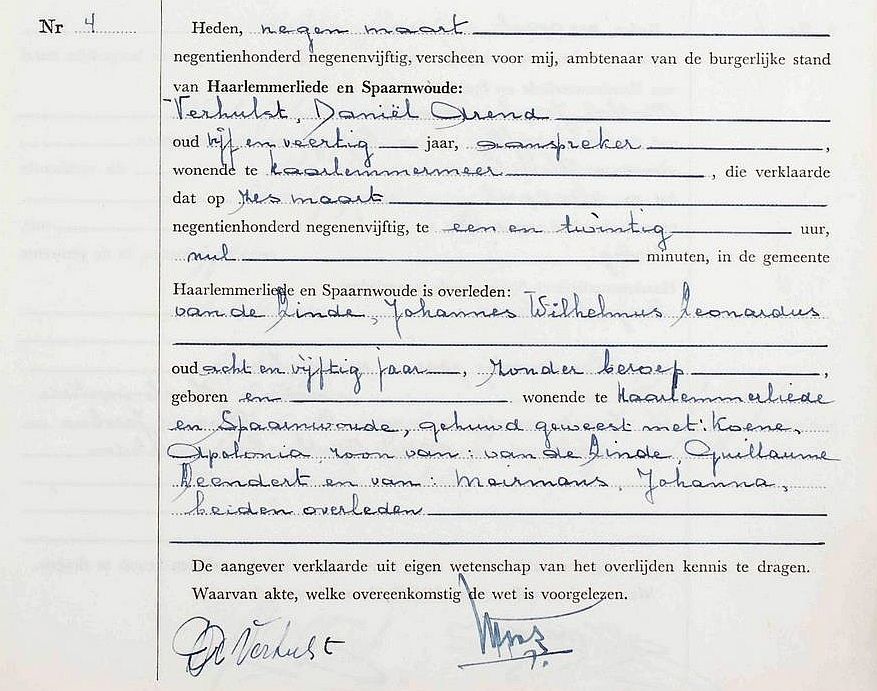 Nr 4
Heden, negen maart
negentienhonderd negenenvijftig, verscheen voor mij, ambtenaar van de burgerlijke stand
van Haarlemmerliede en Spaarnwoude:
Verhulst, Daniël Arend
oud vijf en veertig jaar, aanspreker ,
wonende te Haarlemmermeer , die verklaarde
dat op zes maart
negentienhonderd negenenvijftig, te een en twintig uur,
nul minuten, in de gemeente
Haarlemmerliede en Spaarnwoude is overleden:
van de Linde, Johannes Wilhelmus Leonardus
oud acht en vijftig jaar , zonder beroep ,
geboren en wonende te Haarlemmerliede
en Spaarnwoude, gehuwd geweest met: Koene,
Apolonia, zoon van: van de Linde, Guillaume
Leendert en van: Moirmans, Johanna,
beiden overleden
De aangever verklaarde uit eigen wetenschap van het overlijden kennis te dragen.
Waarvan akte, welke overeenkomstig de wet is voorgelezen.
Verhulst